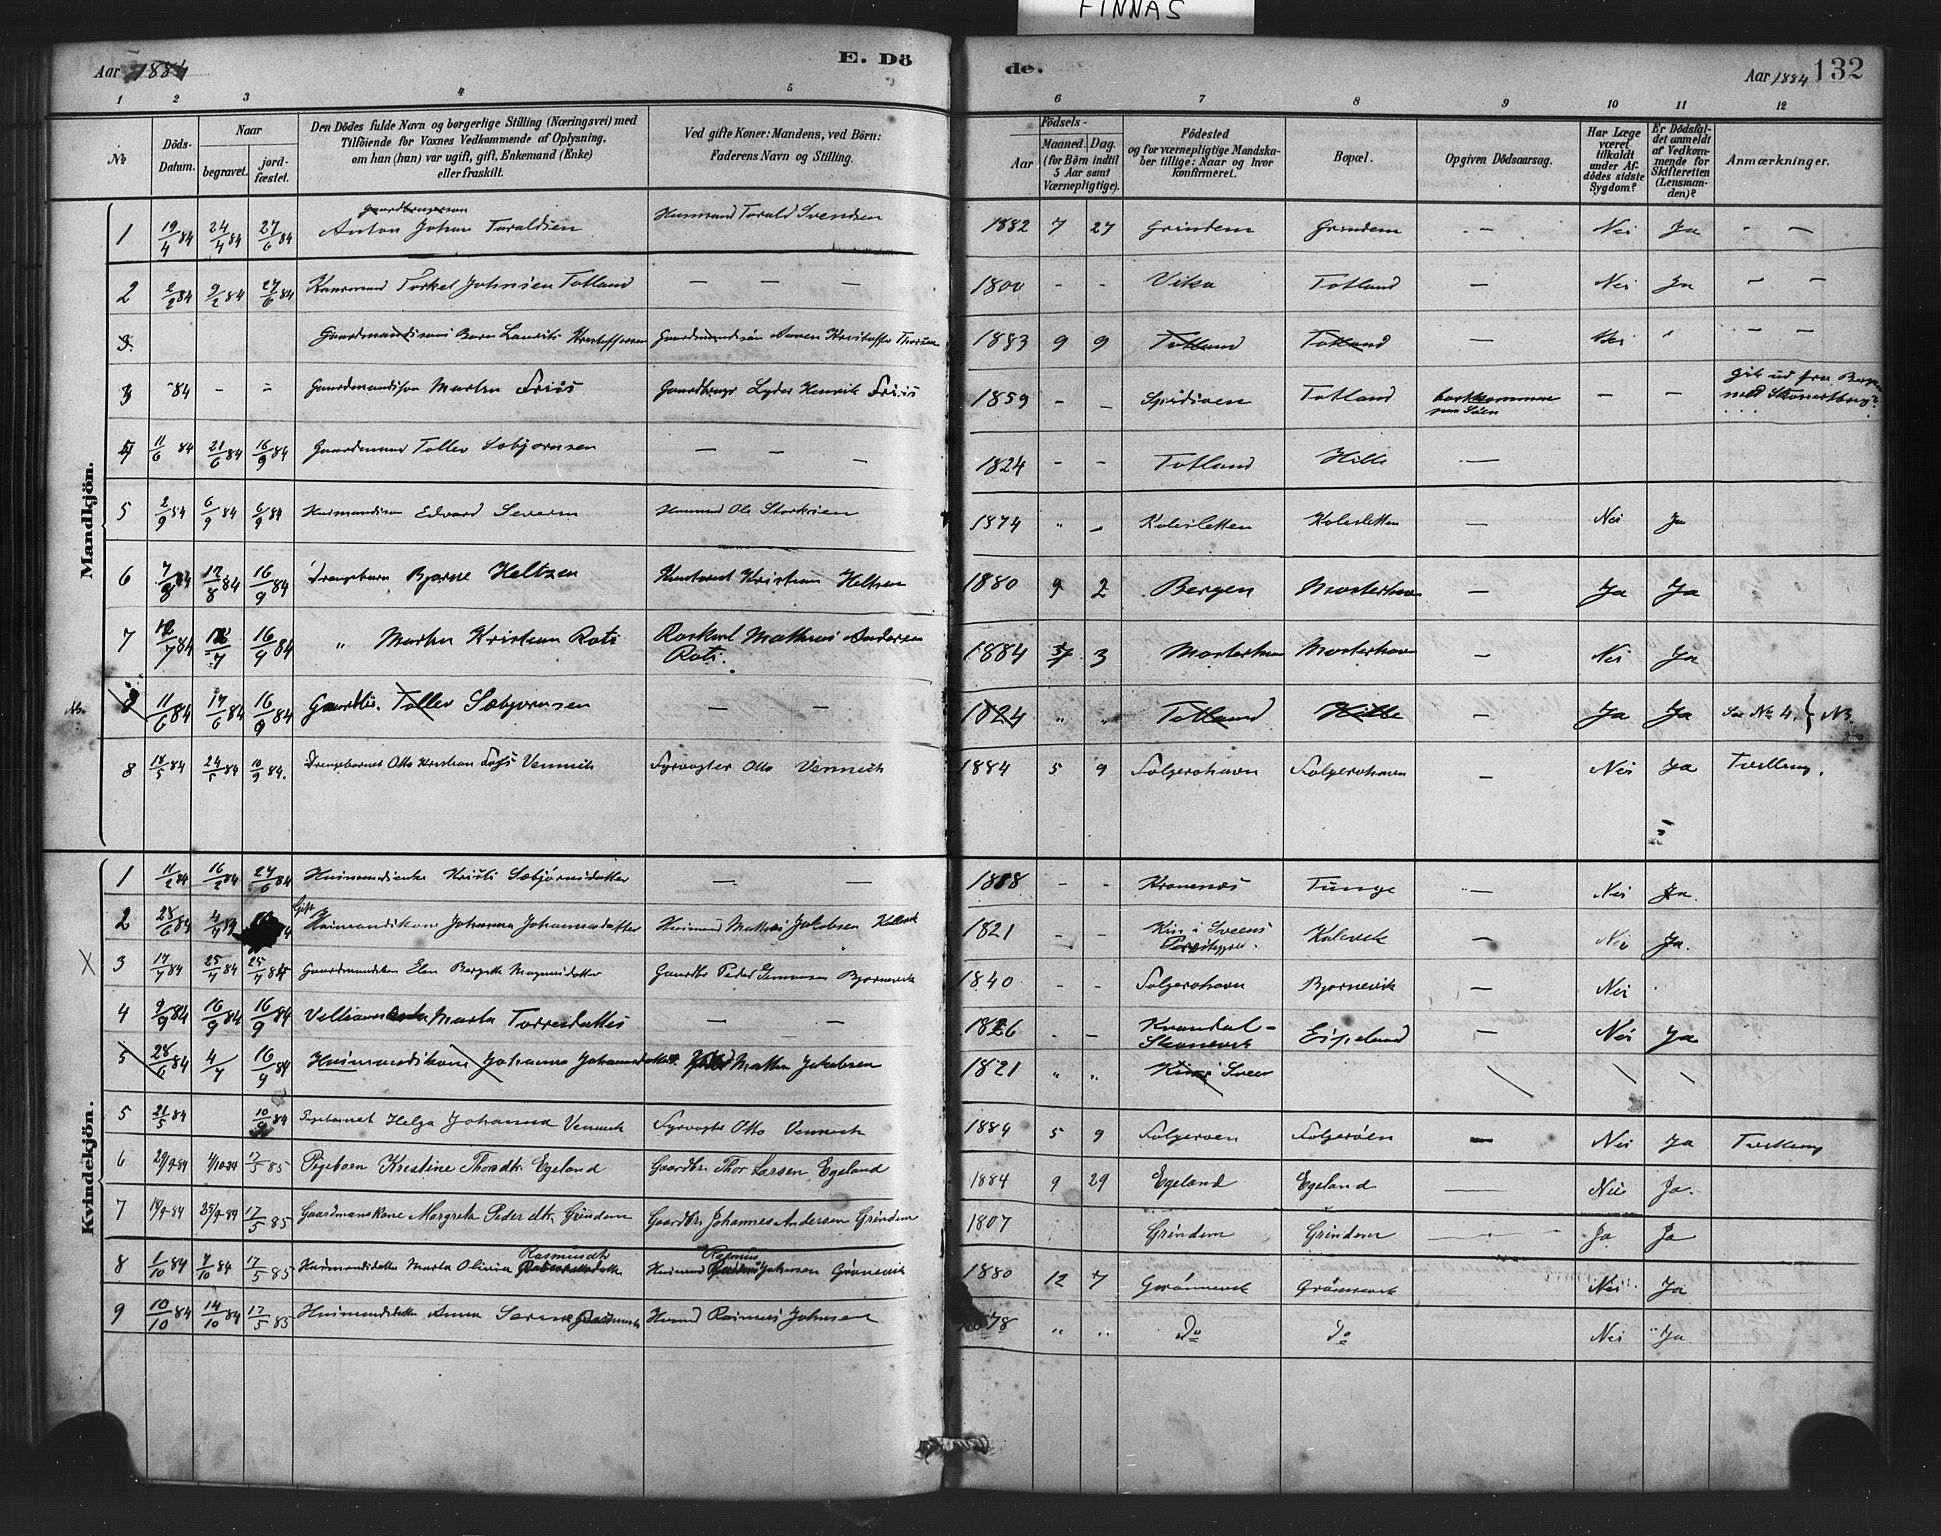 FINNÅS
Aar 1884
E. Dö
de.
Aar 1884
132
1 2 3 4 5
6 7 8 9 10 11 12
No
Döds-Datum.
Naar
begravet.
jord-fæstet.
Den Dödes fulde Navn og borgerlige Stilling (Næringsvei) med
Tilföiende for Voxnes Vedkommende af Oplysning,
om han (hun) var ugift, gift, Enkemand (Enke)
eller fraskilt.
Ved gifte Koner: Mandens, ved Börn:
Faderens Navn og Stilling.
Födsels-
Aar
Maaned. Dag.
(for Börn indtil
5 Aar samt
Værnepligtige).
Födested
og for værnepligtige Mandska-
ber tillige: Naar og hvor
konfirmeret.
Bopæl.
Opgiven Dödsaarsag.
Har Læge
været
tilkaldt
under Af-
dödes sidste
Sygdom?
Er Dödsfal-
det anmeldt
af Vedkom-
mende for
Skifteretten
(Lensman-
den)?
Anmærkninger.
Mandkjön.
1 19/4 84 24/4 84 27/6 84 Anton Johan Taraldsen Husmand Torald Svendsen 1882 7 27 Grindem Grindem - Nei Ja - -
2 2/2 84 9/2 84 27/6 84 Kaarmand Torkel Johnsen Totland - - - 1800 - - Vika Totland - Nei Ja - -
3. Gaardmandssøns Barn Laurits Kristoffersen Gaardmandssøn Kristoffer 1883 9 9 Totland Totland - Nei " - -
3 84 - - Gaardmandssøn Martin Friis Gaardbruger Lyder Henrik Friis 1859 - - Spidsøen Totland bortkommen - - gik ud fra Bergen
paa Søen med
4 11/6 84 21/6 84 16/9 84 Gaardmand Tollev Sæbjørnsen - - - 1824 - - Totland Hille -
5 2/9 84 6/9 84 6/9 84 Husmandssøn Edvard Severin Husmand Ole Storksen 1874 " - Kolesletten Kolesletten - Nei Ja
6 7/8 84 12/8 84 16/9 84 Drengebarn Bjarne Heltzen Kristian Heltzen 1880 9 2 Bergen Mosterhavn - Ja Ja
7 12/7 84 16/9 84 " Martin Kristian Roti Mathias Andersen 1884 3 Mosterhavn Mosterhavn - Nei Ja
Roti.
8 11/6 84 17/6 84 16/9 84 Gaardbr. Tollev Sæbjørnsen - - 1824 " " Totland Hille - Ja Ja Se No 4. } NB
8 18/5 84 24/5 84 10/9 84. Drengebarnet Otto Kristian Vennich Fyrvogter Otto Vennich 1884 5 9 Folgerøhavn Folgerøhavn - Nei Ja Tvilling.
Kvindekjön.
1 11/2 84 16/2 84 27/6 84 Husmandsenke Kristi Sæbjørnsdatter - - Kronenæs Tunge - Nei Ja.
Gift
2 28/6 84 4/7 84 Husmandskone Johanna Johannesdatter Husmand Mathis Jakobsen Kolevik 1821 - - Kin i Sveens Kolevik Nei Ja.
3 17/7 84 25/7 84 25/7 84 Gaardmandskone Elen Bergitte Magnusdatter Gaardbr Peder Bjørnevik 1840 - - Folgerøhavn Bjørnevik - Nei
4 9/9 84 16/9 84 16/9 84 Marta Torresdatter - - 1826 - - Kvandal- Eispeland - Nei Ja
Skonevik
5 28/6 84 4/7 16/9 84 Husmandskone Johanna Johannesdatter Mathis Jakobsen 1821 " " Kin i Sveen
5 21/5 84 10/9 84 Pigebarnet Helga Johanna Vennich Fyrvogter Otto Vennich 1884 5 9 Folgerøen Folgerøen - Nei Ja Tvilling
6 29/9 84 4/10 84 17/5 85 Pigebarn Kristine Thorsdtr. Egeland Gaardbr. Thor Larsen Egeland 1884 9 29 Egeland Egeland - Nei Ja.
7 19/9 84 25/9 84 17/5 85 Gaardmanskone Margreta Pedersdtr. Grindem Gaardbr. Johannes Andersen Grindem 1807 Grindem Grindem - Ja Ja
8 1/10 84 7/10 84 17/5 85 Husmandsdatter Marta Olivia Rasmusdtr Husmand Rasmus Johnsen Grønevik 1880 12 7 Grønnevik Grønnevik Nei Ja
9 10/10 84 14/10 84 17/5 85 Husmandsdatter Anna Serine Husmd Rasmus Johnsen 78 " " Do Do Nei Ja